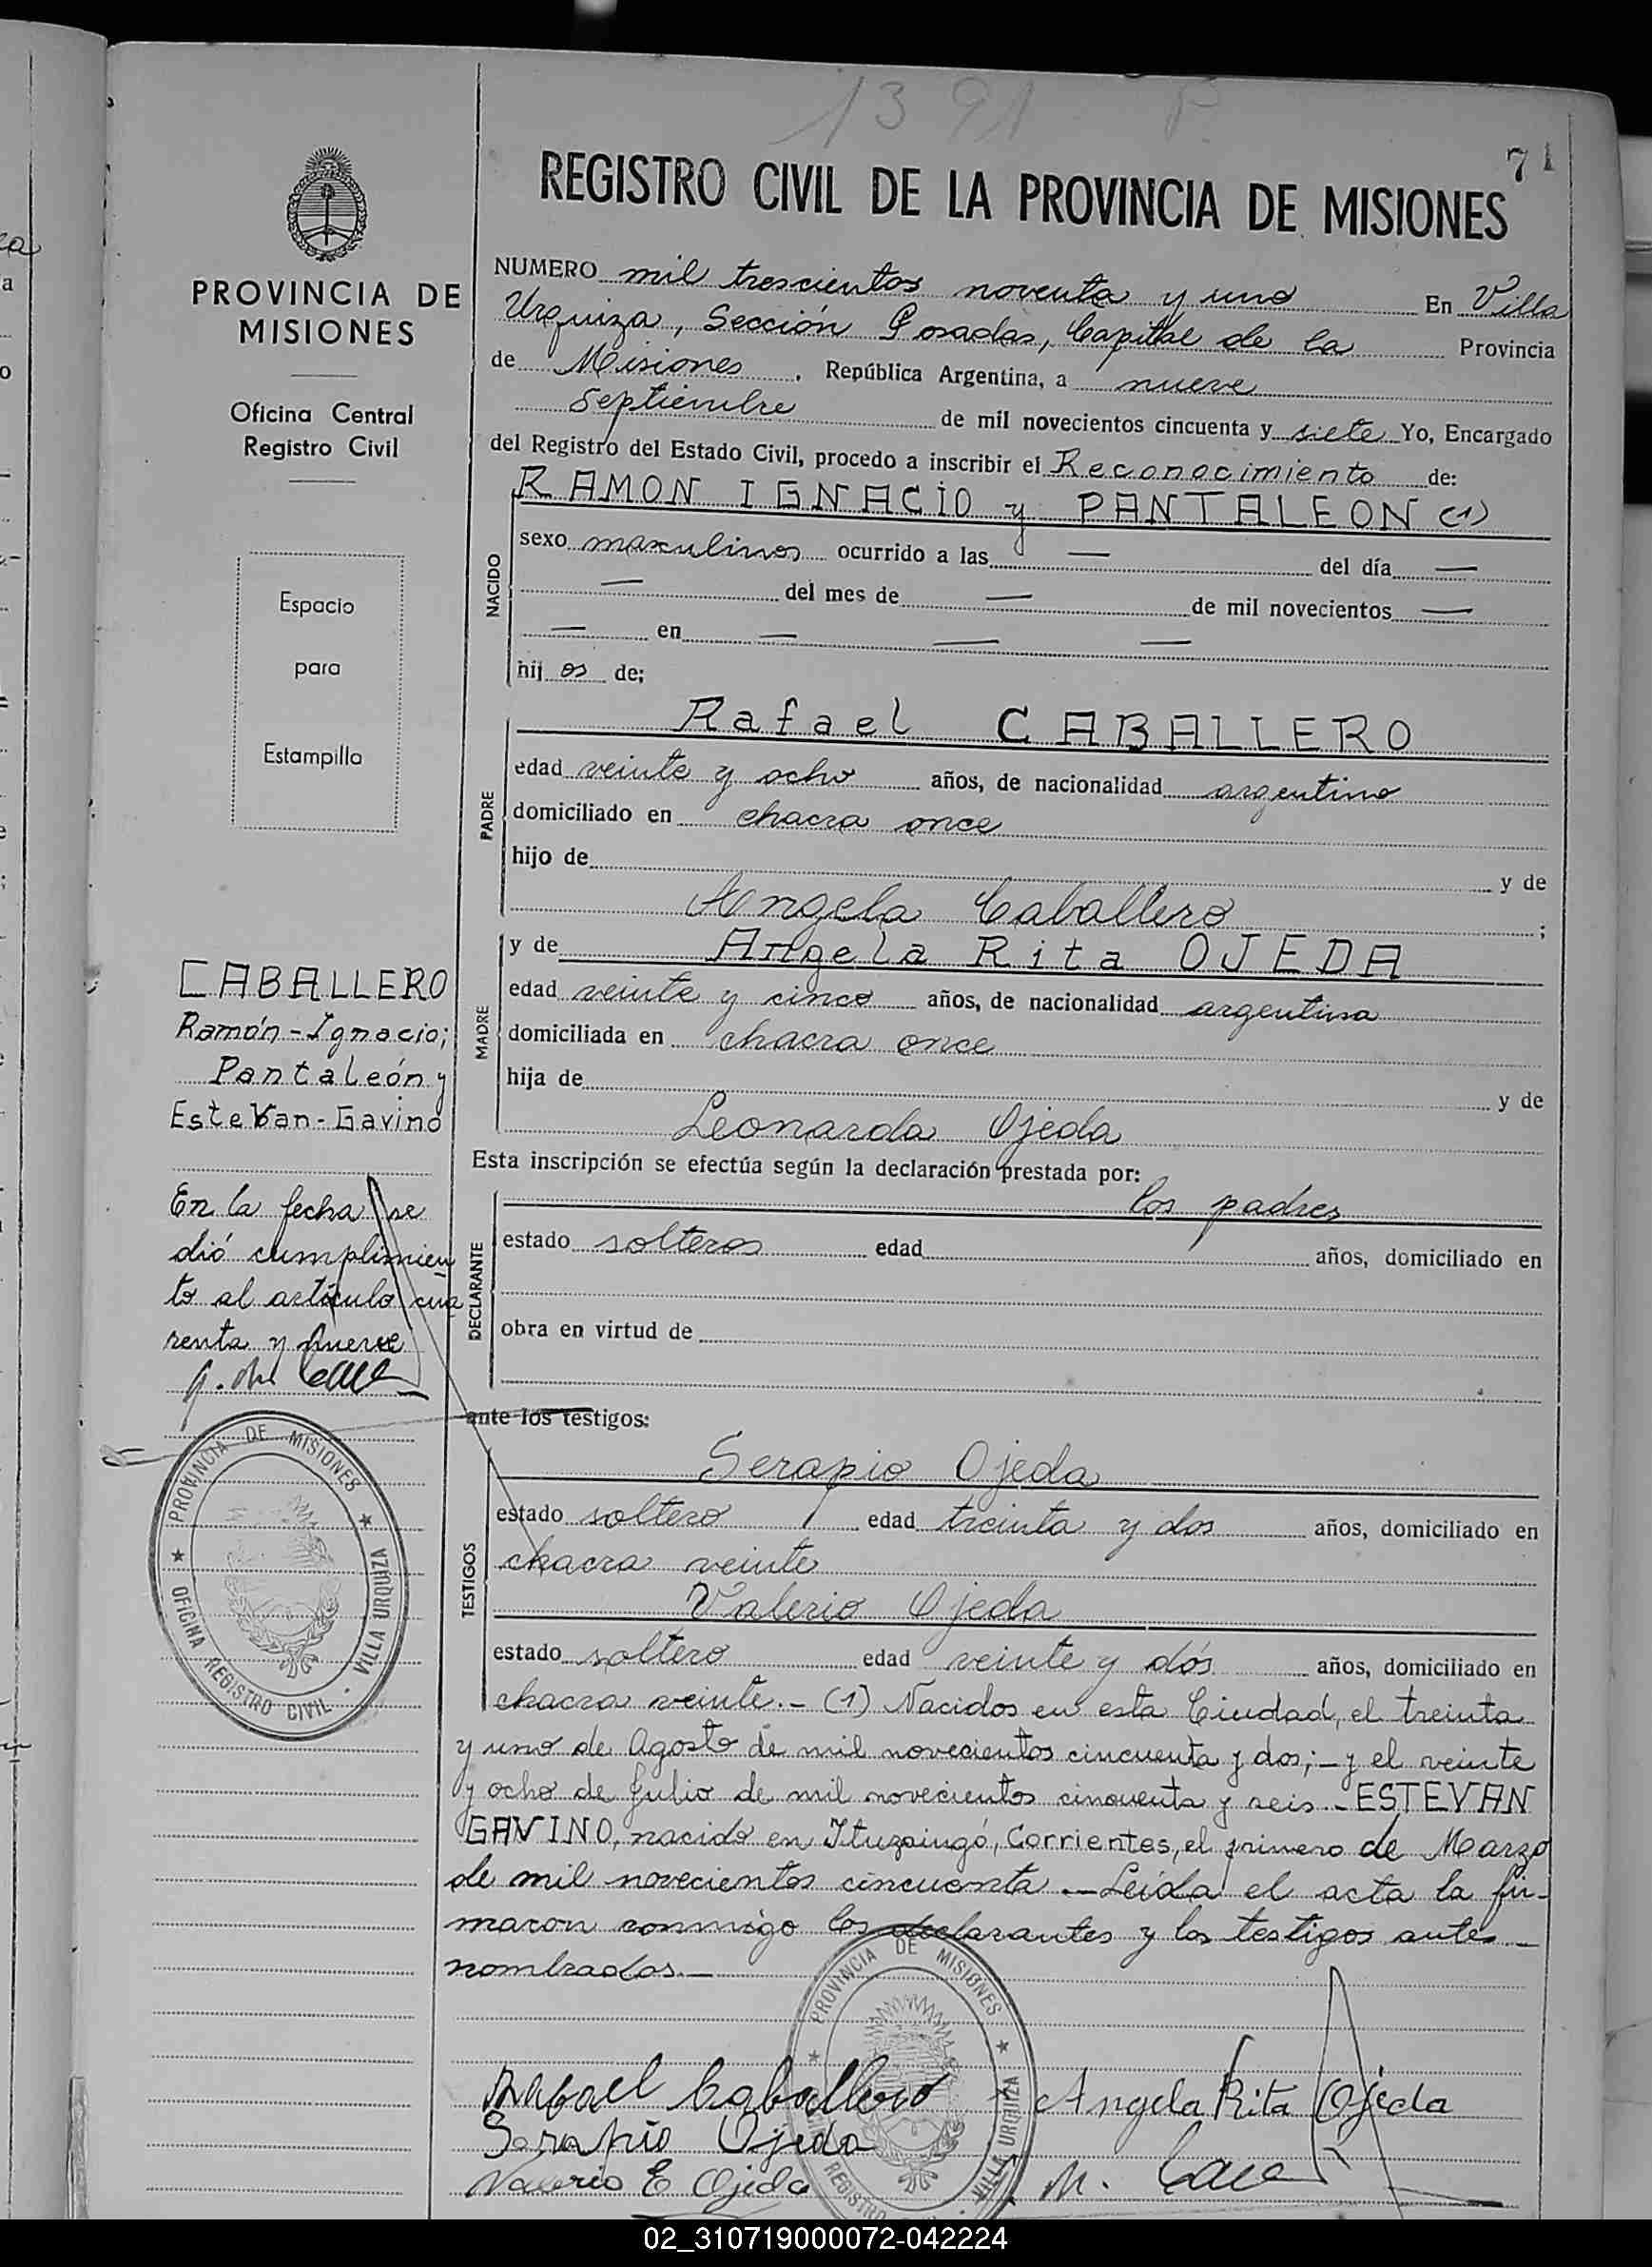 1391 P.
71
REGISTRO CIVIL DE LA PROVINCIA DE MISIONES
PROVINCIA DE
MISIONES
Oficina Central
Registro Civil
Espacio
para
Estampilla
CABALLERO
Ramón-Ignacio;
Pantaleón y
Estevan-Gavino
En la fecha se
dió cumplimien
to al artículo cua
renta y nueve
PROVINCIA DE MISIONES ★ VILLA URQUIZA · OFICINA REGISTRO CIVIL ★
NUMERO mil trescientos noventa y uno En Villa
Urquiza, Sección Posadas, Capital de la Provincia
de Misiones, República Argentina, a nueve
septiembre de mil novecientos cincuenta y siete Yo, Encargado
del Registro del Estado Civil, procedo a inscribir el Reconocimiento de:
RAMON IGNACIO y PANTALEON (1)
NACIDO
sexo masculinos ocurrido a las — del día —
— del mes de — de mil novecientos —
— en — — —
hij os de;
Rafael CABALLERO
PADRE
edad veinte y ocho años, de nacionalidad argentino
domiciliado en chacra once
hijo de y de
Angela Caballero ;
y de Angela Rita OJEDA
MADRE
edad veinte y cinco años, de nacionalidad argentina
domiciliada en chacra once
hija de y de
Leonarda Ojeda
Esta inscripción se efectúa según la declaración prestada por:
los padres
DECLARANTE
estado solteros edad años, domiciliado en
obra en virtud de
ante los testigos:
Serapio Ojeda
TESTIGOS
estado soltero edad treinta y dos años, domiciliado en
chacra veinte
Valerio Ojeda
estado soltero edad veinte y dós años, domiciliado en
chacra veinte.- (1) Nacidos en esta Ciudad, el treinta
y uno de Agosto de mil novecientos cincuenta y dos;- y el veinte
y ocho de Julio de mil novecientos cincuenta y seis.- ESTEVAN
GAVINO, nacido en Ituzaingó, Corrientes, el primero de Marzo
de mil novecientos cincuenta.- Leída el acta la fir-
maron conmigo los declarantes y los testigos ante-
nombrados.-
Rafael Caballero Angela Rita Ojeda
Serapio Ojeda
Valerio E Ojeda
PROVINCIA DE MISIONES ★ VILLA URQUIZA
02_310719000072-042224